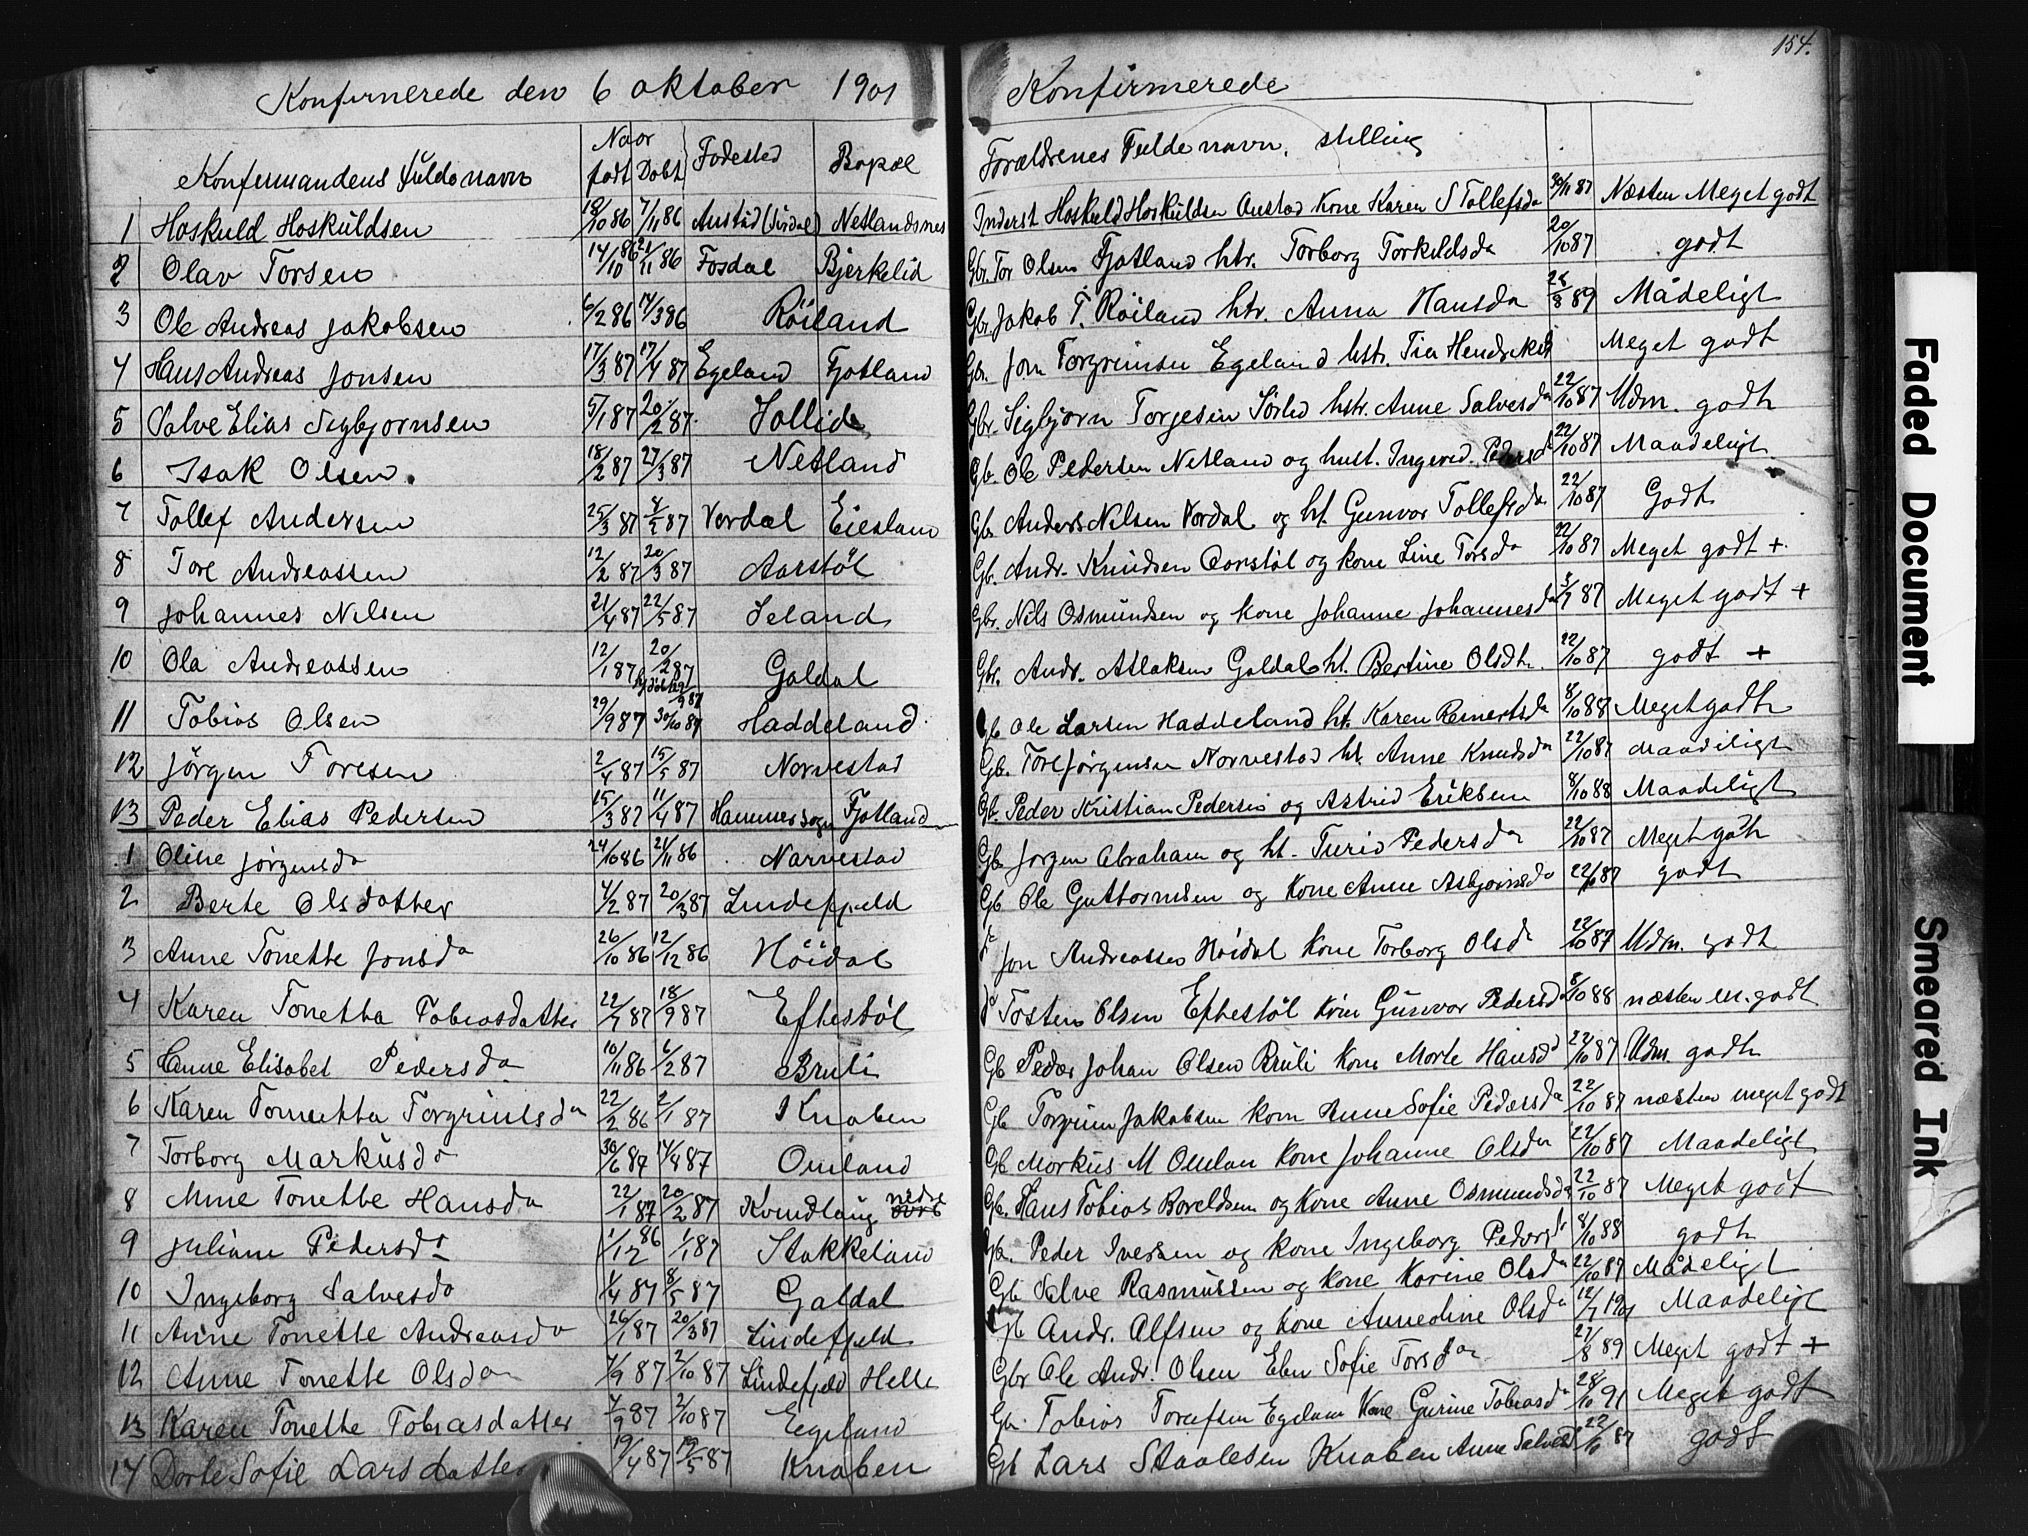 154.
Konfirmerede den 6 oktober 1901
Konfirmerede
Naar
Konfirmandens fulde navn født Døbt Fødested Bopæl
Forældrenes Fulde navn, stilling
1 Hoskuld Hoskuldsen 18/10 86 7/11 86 Austad (Sirdal) Netlandsnes Inderst Hoskuld Hoskuldsen Austad Kone Karen S Tollefsda 30/11 87 Næsten Meget godt
2 Olav Torsen 14/10 86 21/11 86 Fosdal Bjerkelid Gbr. Tor Olsen Fjotland htr. Torborg Torkildsda 20/10 87 godt
3 Ole Andreas Jakobsen 6/2 86 14/3 86 Röiland Gbr. Jakob T. Röiland htr. Anna Hansda 28/8 89 Mådeligt
4 Hans Andreas Jonsen 17/3 87 17/4 87 Egeland Fjotland Gbr. Jon Torgrimsen Egeland hstr. Tia Meget godt
5 Salve Elias Sigbjørnsen 5/1 87 20/2 87 Gbr. Sigbjørn Torgesen hstr. Anne Salvesda 22/10 87 Udm. godt
6 Isak Olsen. 18/2 87 27/3 87 Netland Gb. Ole Pedersen Netland og hust. Ingevid Pedersd 22/10 87 Maadeligt
7 Tollef Andersen 25/3 87 8/5 87 Vordal Eiesland Gb. Anders Nilsen Vordal og ht. Gunvor Tollefsda 22/10 87 Godt
8 Tore Andreassen 12/2 87 20/3 87 Aarstöl Gb. Andr. Knudsen Aarstöl og kone Line Torsda 22/10 87 Meget godt +
9 Johannes Nilsen 21/4 87 22/5 87 Seland Gbr. Nils Osmundsen og kone Johanne Johannesda 3/7 87 Meget godt +
10 Ola Andreassen 12/1 87 20/2 87 Galdal Gbr. Andr. Atlaksen Galdal ht. Bertine Olsdtr. 22/10 87 godt +
11 Tobias Olsen 29/9 87 30/10 87 Haddeland Gb Ole Larsen Haddeland ht. Karen Reinertsda 8/10 88 Meget godt
12 Jörgen Toresen 2/4 87 15/5 87 Norvestad Gb. Tore Jörgensen Norvestad ht Anne Knudsda 22/10 87 Maadeligt
13 Peder Elias Pedersen 15/3 87 11/4 87 Hammer sogn Fjotland Gb. Peder Kristian Pedersen og Astrid Eriksen 8/10 88 Maadeligt
1 Oline Jörgensda 24/10 86 21/11 86 Narvestad Gb. Jörgen Abraham og ht. Turid Pedersda 22/10 87 Meget godt
2 Berte Olsdatter 4/2 87 20/3 87 Lindefjeld Gb Ole Guttormsen og Kone Anne Asbjörnsda 22/10 87 godt
3 Anne Tonette Jonsda 26/10 86 12/12 86 Höidal Jon Andreassen Höidal Kone Torborg Olsda 22/10 87 Udm. godt
4 Karen Tonetta Tobiasdatter 22/7 87 18/9 87 Eftestöl do Tosten Olsen Eftestöl Kone Gunvor Pedersda 8/10 88 næsten m. godt
5 Hanne Elisabet Pedersda 10/11 86 6/2 87 Bruli Gb Peder Johan Olsen Bruli Kone Morte Hansd 22/10 87 Udm godt
6 Karen Tometta Torgrimsda 22/2 86 2/1 87 Knaben Gb Torgrim Jakobsen kone Anne Sofie Pedersda 22/10 87 næsten meget godt
7 Torborg Markusda 30/6 87 14/8 87 Omland Gb Morkus M Omlan Kone Johanne Olsda 22/10 87 Maadeligt
8 Anne Tonette Hansda 22/1 87 20/2 87 Kvindlaug nedre övre Gb. Hans Tobias og Kone Anne Osmundsda 22/10 87 Meget godt
9 Juliane Pedersda 1/12 86 1/1 87 Stakkeland Gb. Peder Iversen og Kone Ingeborg Pedersd 8/10 88 godt
10 Ingeborg Salvesda 1/4 87 8/5 87 Galdal Gb Salve Rasmussen og Kone Karine Olsda 22/10 87 Mådeligt
11 Anne Tonette Andreasda 26/1 87 20/3 87 Lindefjeld Gb Andr. Alfsen og Kone Annedine Olsda 12/7 1901 Maadeligt
12 Anne Tonette Olsda 4/9 87 2/10 87 Lindefjeld Helle Gbr Ole Andr. Olsen Elen Sofie Torsda 27/8 89 Meget godt +
13 Karen Tonette Tobiasdatter 4/9 87 2/10 87 Egeland Gb. Tobias Egelan Kone Gurine Tobiasd 28/10 91 Meget godt
14 Dorte Sofie Larsdatter 19/4 87 19/5 87 Knaben Gb Lars Staalesen Knaben Anne Salvesd 22/10 87 godt
Faded Document
Smeared Ink